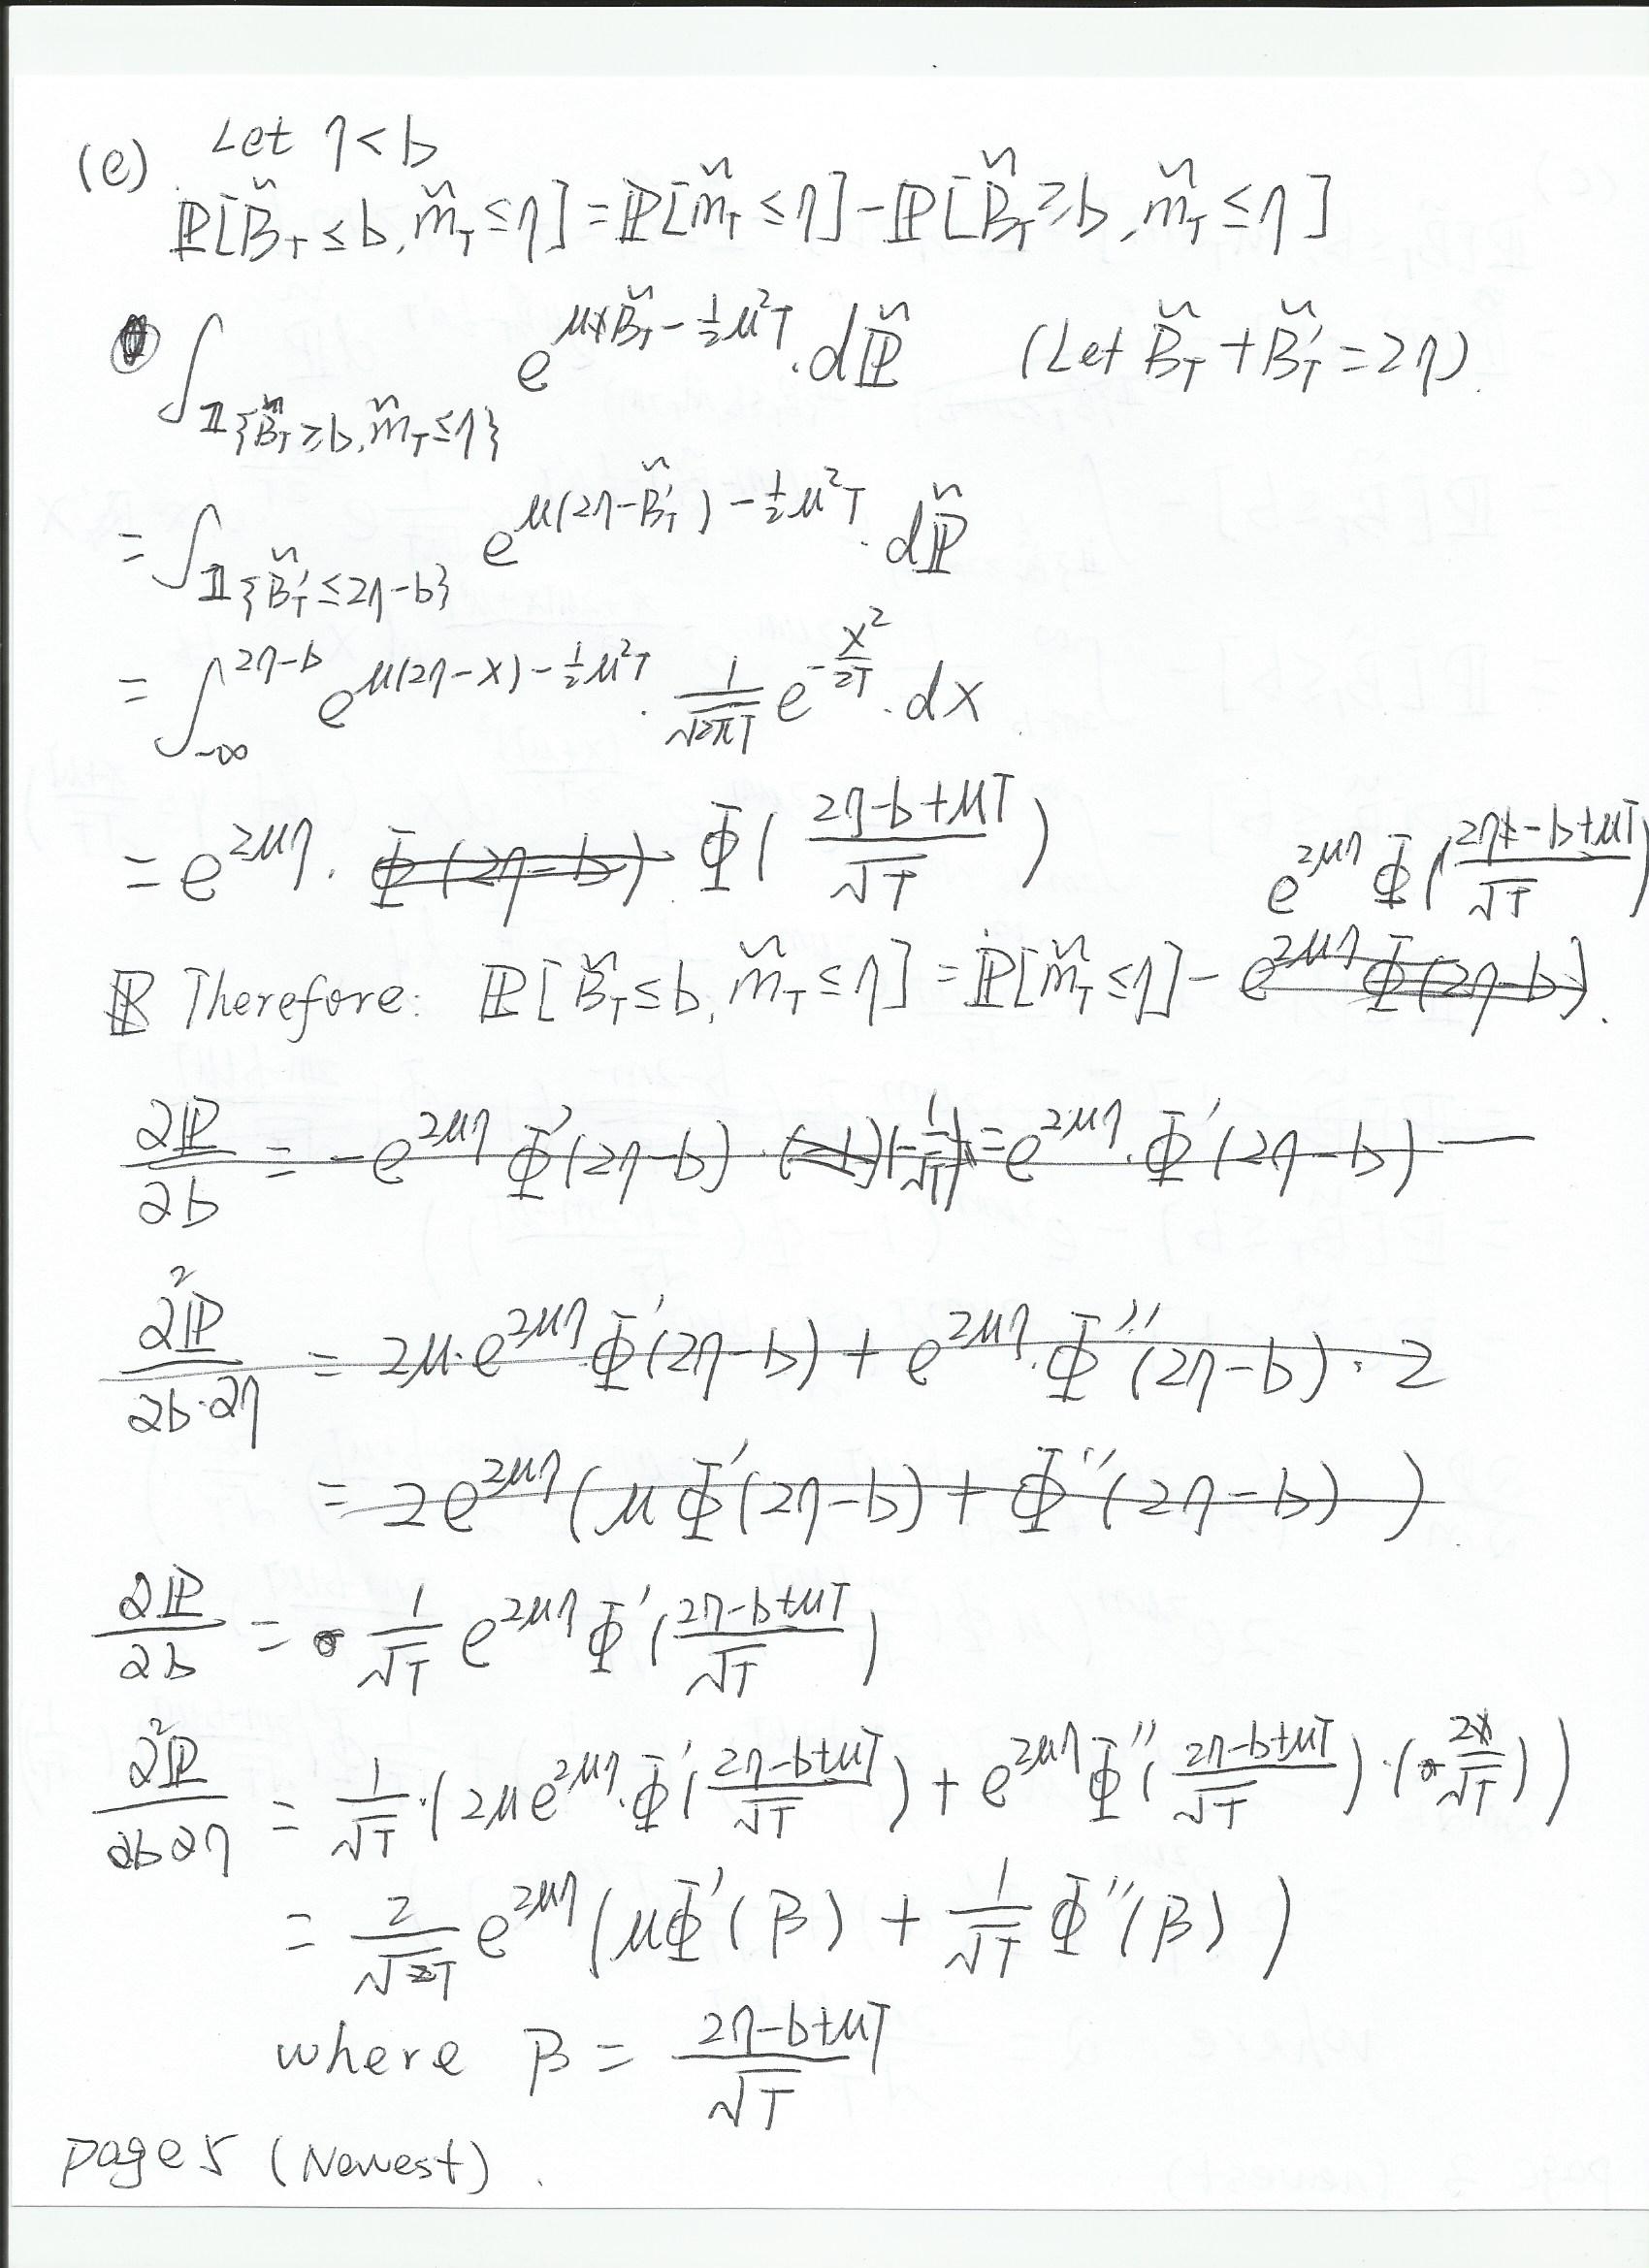 (e) Let η < b
ℙ[B̃_T ≤ b, m̃_T ≤ η] = ℙ[m̃_T ≤ η] − ℙ[B̃_T ≥ b, m̃_T ≤ η]
∫_{𝟙{B̃_T ≥ b, m̃_T ≤ η}} e^{μB̃_T − ½μ²T} · dℙ̃ (Let B̃_T + B̃'_T = 2η).
= ∫_{𝟙{B̃'_T ≤ 2η−b}} e^{μ(2η−B̃'_T) − ½μ²T} · dℙ̃
= ∫_{−∞}^{2η−b} e^{μ(2η−x) − ½μ²T} · 1/√(2πT) e^{−x²/2T} · dx
= e^{2μη} · Φ(2η−b) Φ((2η−b+μT)/√T)
e^{2μη} Φ((2η−b+μT)/√T)
Therefore: ℙ[B̃_T ≤ b, m̃_T ≤ η] = ℙ[m̃_T ≤ η] − e^{2μη} Φ(2η−b).
∂ℙ/∂b = −e^{2μη} Φ'(2η−b) · (−1)(−1/√T) = e^{2μη} · Φ'(2η−b)
∂²ℙ/∂b·∂η = 2μ·e^{2μη} Φ'(2η−b) + e^{2μη} · Φ''(2η−b) · 2
= 2e^{2μη} (μΦ'(2η−b) + Φ''(2η−b))
∂ℙ/∂b = 1/√T e^{2μη} Φ'((2η−b+μT)/√T)
∂²ℙ/∂b∂η = 1/√T · (2μe^{2μη} · Φ'((2η−b+μT)/√T) + e^{2μη} Φ''((2η−b+μT)/√T) · (2/√T))
= 2/√T e^{2μη} (μΦ'(β) + 1/√T Φ''(β))
where β = (2η−b+μT)/√T
page 5 (Newest).